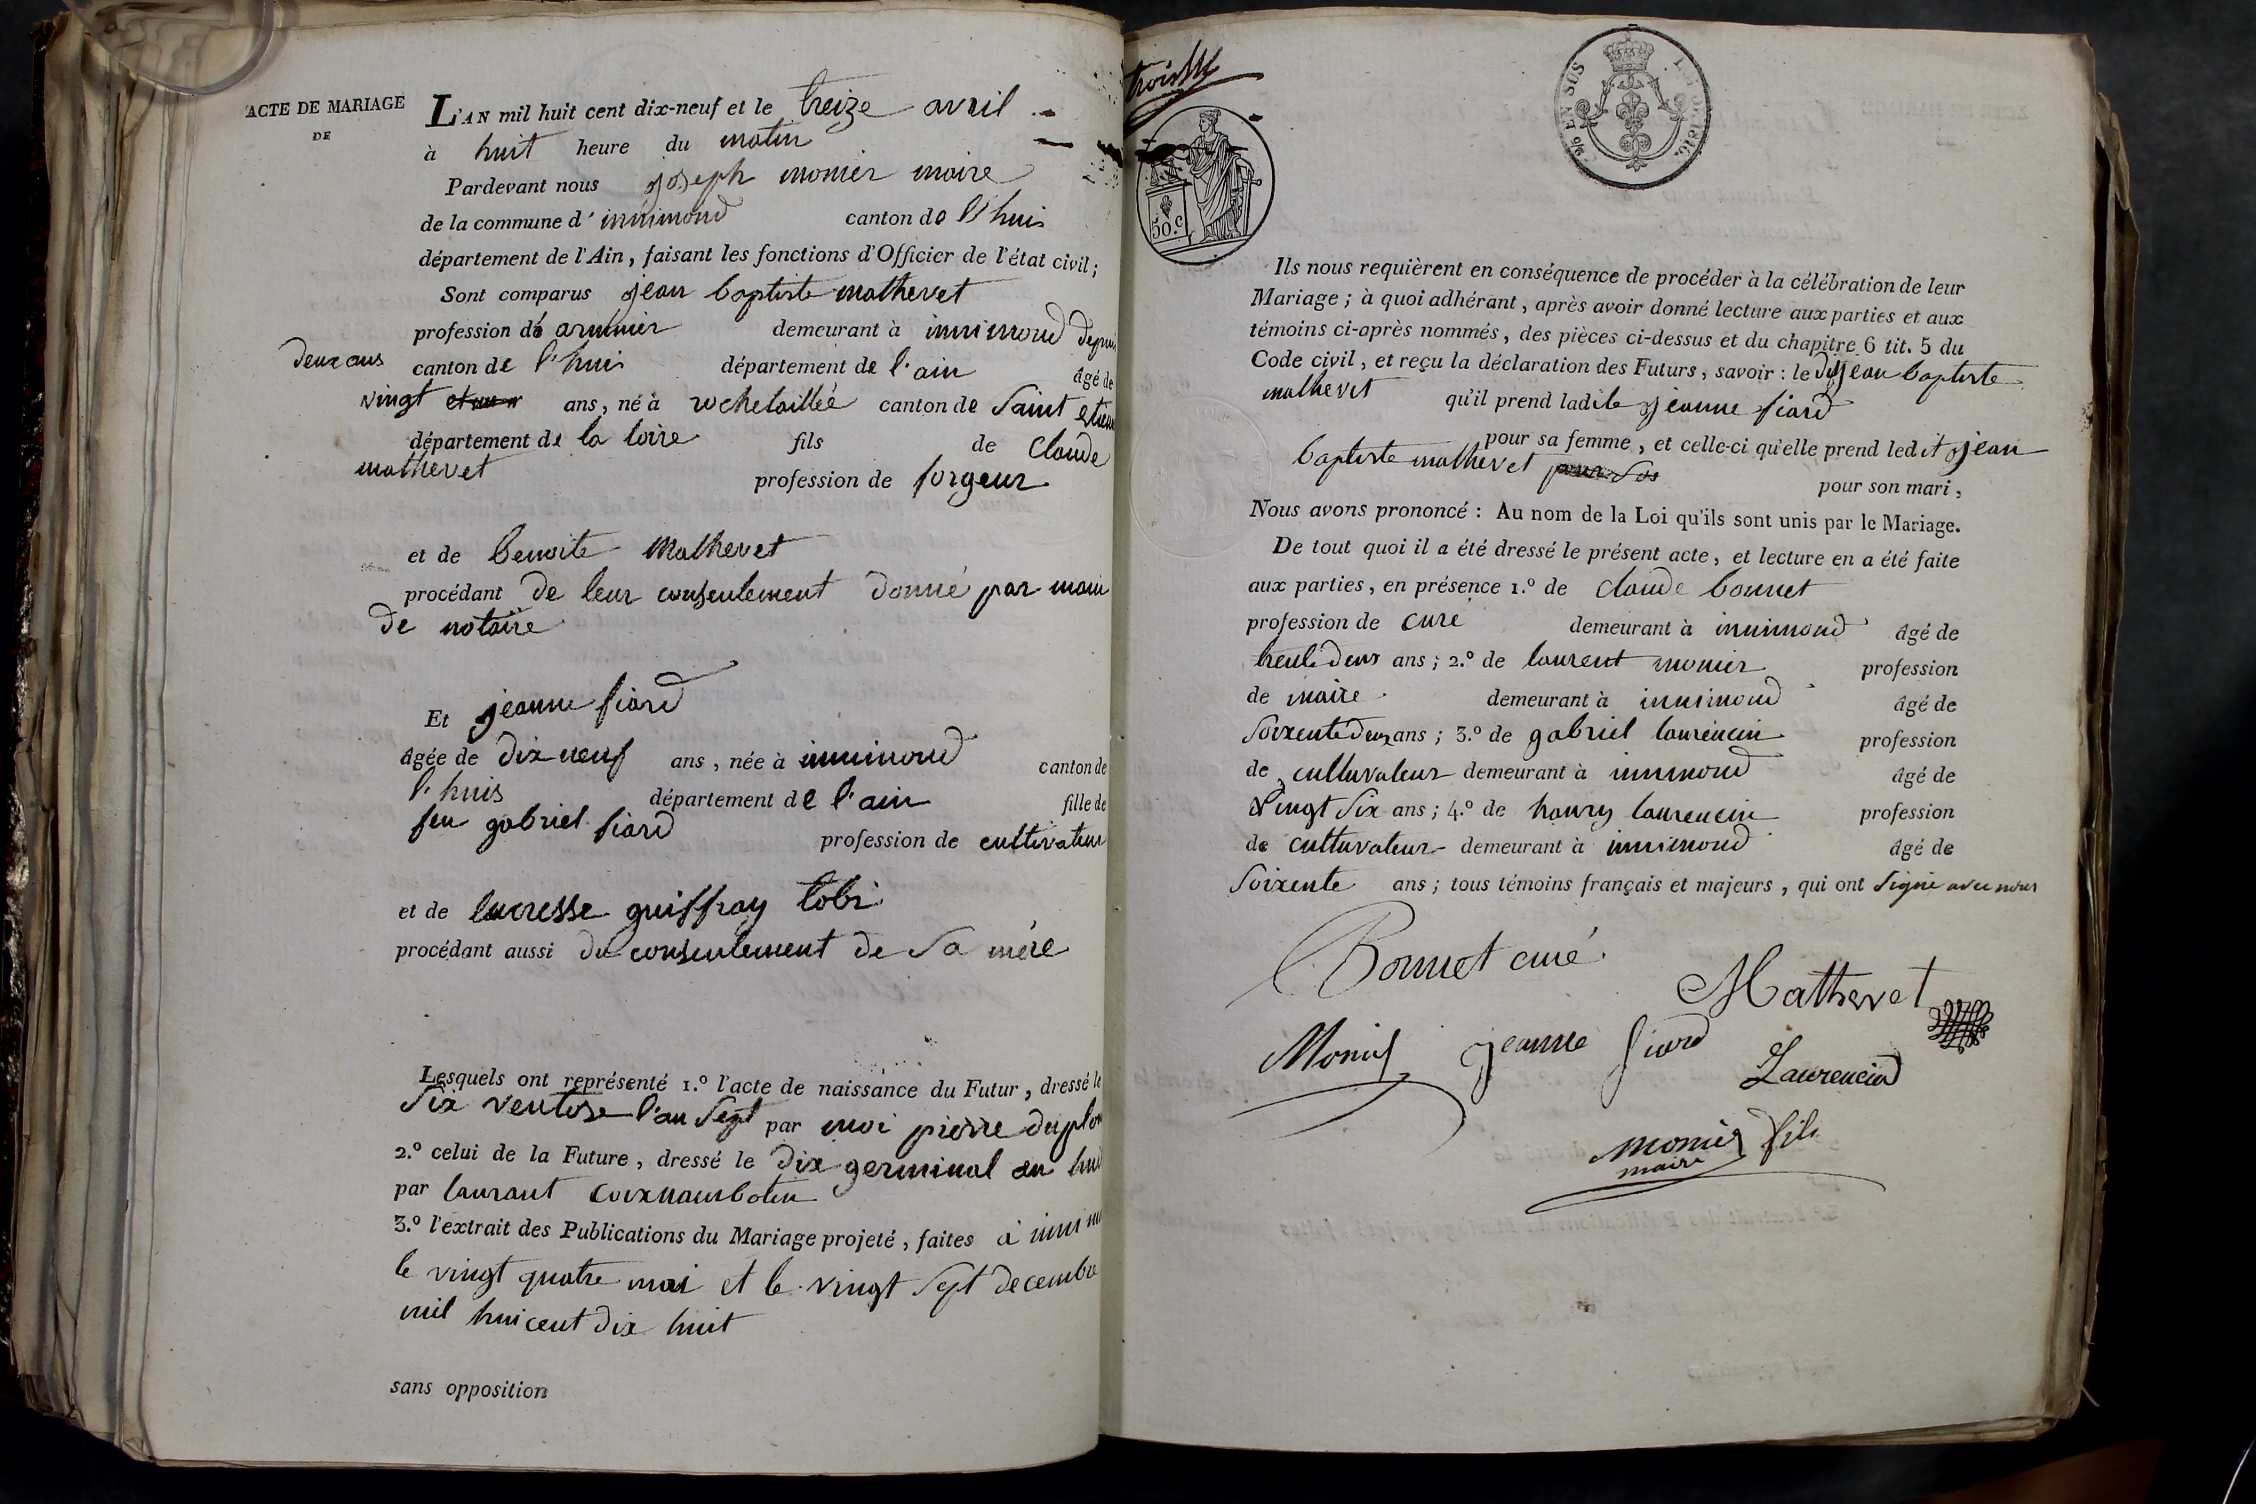 ACTE DE MARIAGE
DE
L'AN mil huit cent dix-neuf et le treize avril
à huit heure du matin
Pardevant nous joseph monier maire
de la commune d' innimond canton de l'huis
département de l'Ain, faisant les fonctions d'Officier de l'état civil;
Sont comparus jean baptiste mathevet
profession d' armurier demeurant à innimond depuis
deux ans canton de l'huis département de l'ain âgé de
vingt et un ans, né à rochetaillée canton de Saint etienne
département de la loire fils de Claude
mathevet profession de forgeur
et de benoite Mathevet
procédant de leur consentement donné par main
de notaire
Et jeanne fiard
âgée de dix neuf ans, née à innimond canton de
l'huis département de l'ain fille de
feu gabriel fiard profession de cultivateur
et de lucresse guiffray tobi
procédant aussi du consentement de Sa mére
Lesquels ont représenté 1.º l'acte de naissance du Futur, dressé le
Six ventose l'an Sept par moi pierre
2.º celui de la Future, dressé le dix germinal an huit
par laurant
3.º l'extrait des Publications du Mariage projeté, faites à
le vingt quatre mai et le vingt Sept decembre
mil huicent dix huit
sans opposition
50.C
96 EN SUS
LOI DE 1816.
Ils nous requièrent en conséquence de procéder à la célébration de leur
Mariage; à quoi adhérant, après avoir donné lecture aux parties et aux
témoins ci-après nommés, des pièces ci-dessus et du chapitre 6 tit. 5 du
Code civil, et reçu la déclaration des Futurs, savoir: le dit jean baptiste
mathevet qu'il prend ladite jeanne fiard
pour sa femme, et celle-ci qu'elle prend ledit jean
baptiste mathevet pour
pour son mari,
Nous avons prononcé: Au nom de la Loi qu'ils sont unis par le Mariage.
De tout quoi il a été dressé le présent acte, et lecture en a été faite
aux parties, en présence 1.º de claude bonnet
profession de curé demeurant à innimond âgé de
trente deux ans; 2.º de laurent monier profession
de maire demeurant à innimond âgé de
Soixente deux ans; 3.º de gabriel laurencin profession
de cultuvateur demeurant à innimond âgé de
vingt Six ans; 4.º de hanry laurencin profession
de cultuvateur demeurant à innimond âgé de
Soixente ans; tous témoins français et majeurs, qui ont Signé avec nous
Bonnet curé
Mathevet
Monier jeanne fiard
Laurencin
monier fils
maire